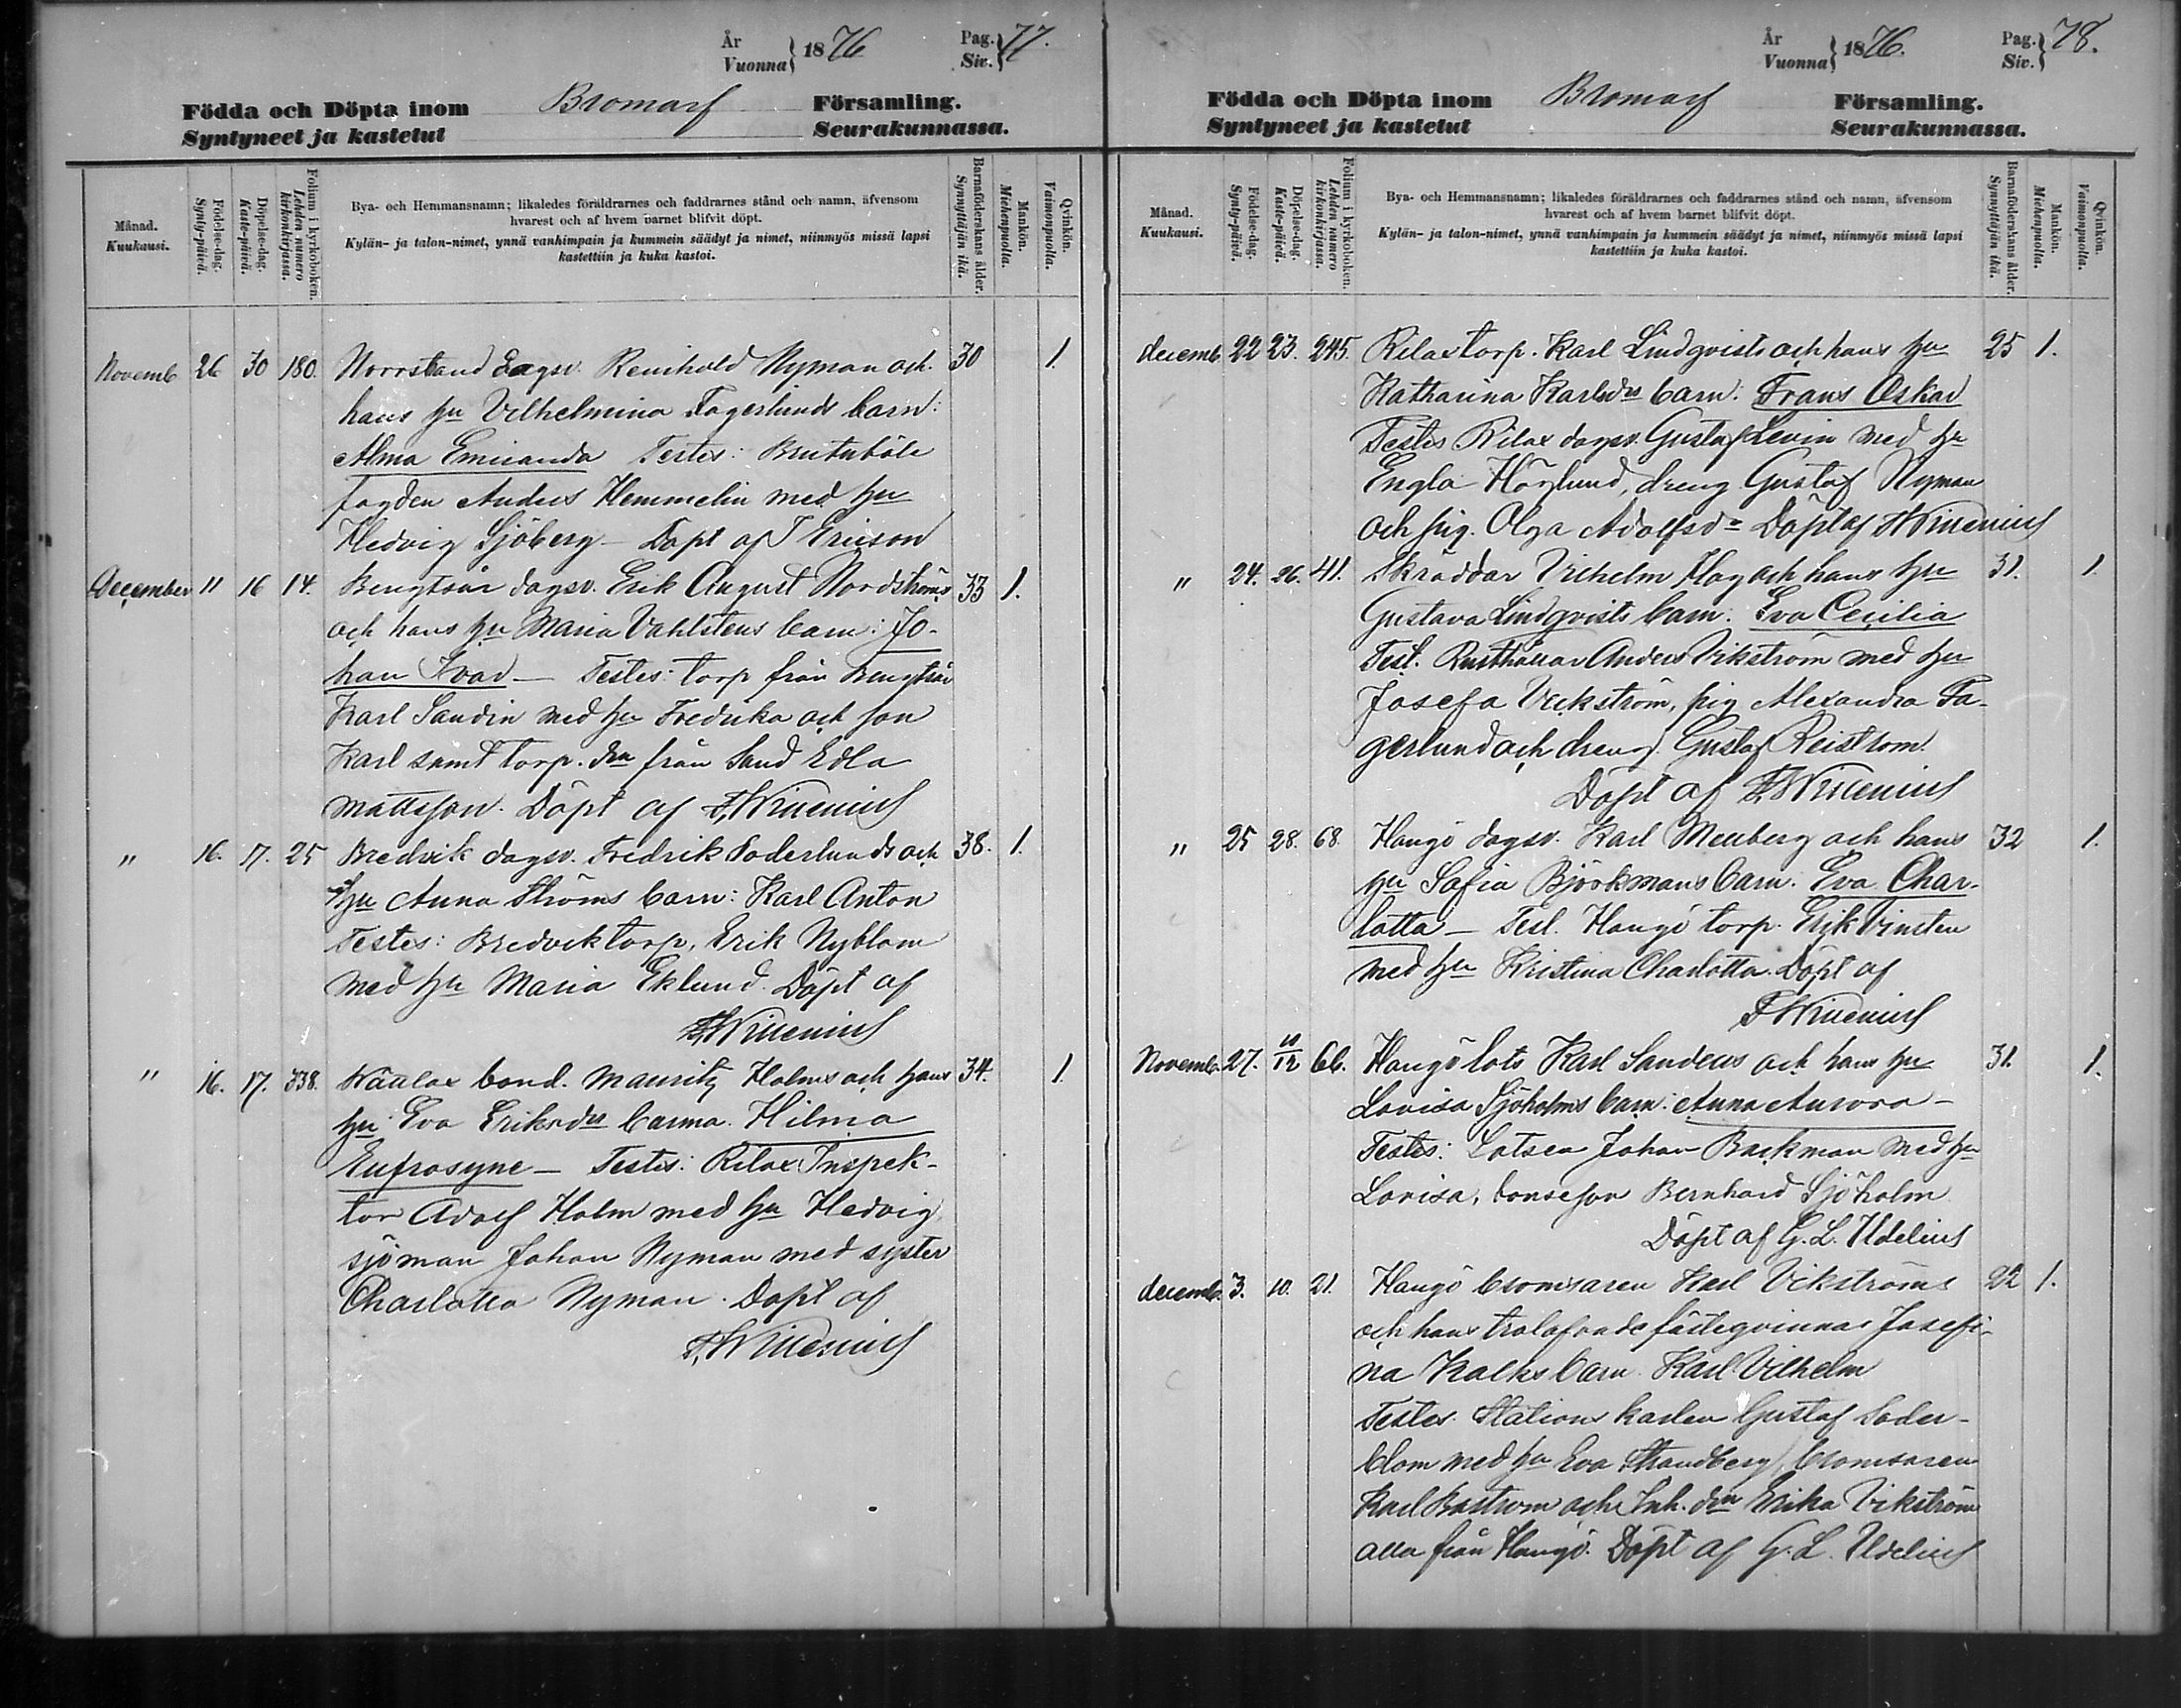 År
Vuonna } 1876
Pag.
Siv. } 77.
Födda och Döpta inom Bromarf Församling.
Syntyneet ja kastetut Seurakunnassa.
Månad.
Kuukausi.
Födelse-dag.
Synty-päivä.
Döpelse-dag.
Kaste-päivä.
Folium i kyrkoboken.
Lehden numero kirkonkirjassa.
Bya- och Hemmansnamn; likaledes föräldrarnes och faddrarnes stånd och namn, äfvensom
hvarest och af hvem barnet blifvit döpt.
Kylän- ja talon-nimet, ynnä vanhimpain ja kummein säädyt ja nimet, niinmyös missä lapsi
kastettiin ja kuka kastoi.
Barnaföderskans ålder.
Synnyttäjän ikä.
Mankön.
Miehenpuolia.
Qvinkön.
Vaimonpuolia.
Novemb 26 30 180. Norrstand dagsv. Reinhold Nyman och 30 1.
hans hu Vilhelmina Fagerlunds barn:
Alma Emicanda Testes: Brutuböle
fogden Anders Hemmelin med hu
Hedvig Sjöberg – Döpt af T Ericson
December 11 16 14. Bengtsår dagsv. Erik August Nordströms 33 1.
och hans hu Maria Vahlstens barn: Jo-
han Ivar – Testes: torp från Bengtsår
Karl Sandin med hu Fredrika och son
Karl samt torp. dra från Sand Edla
Mattsson. Döpt af F, Winenius
" 16. 17. 25 Bredvik dagsv. Fredrik Söderlunds och 38. 1.
hu Anna Ströms barn: Karl Anton
Testes: Bredvik torp. Erik Nyblom
med hu Maria Eklund. Döpt af
F, Winenius
" 16. 17. 338. bond. Mauritz Holms och hans 34. 1.
hu Eva Eriksdrs barna. Hilma
Eufrosyne – Testes: Rilax Inspek-
tor Adolf Holm med hu Hedvig,
sjöman Johan Nyman med syster
Charlotta Nyman. Döpt af
F, Winenius
År
Vuonna } 1876.
Pag.
Siv. } 78.
Födda och Döpta inom Bromarf Församling.
Syntyneet ja kastetut Seurakunnassa.
Månad.
Kuukausi.
Födelse-dag.
Synty-päivä.
Döpelse-dag.
Kaste-päivä.
Folium i kyrkoboken.
Lehden numero kirkonkirjassa.
Bya- och Hemmansnamn; likaledes föräldrarnes och faddrarnes stånd och namn, äfvensom
hvarest och af hvem barnet blifvit döpt.
Kylän- ja talon-nimet, ynnä vanhimpain ja kummein säädyt ja nimet, niinmyös missä lapsi
kastettiin ja kuka kastoi.
Barnaföderskans ålder.
Synnyttäjän ikä.
Mankön.
Miehenpuolia.
Qvinkön.
Vaimonpuolia.
decemb 22 23. 245. Rilax torp. Karl Lindqvists och hans hu 25 1.
Katharina Karlsdrs barn: Frans Oskar
Testes Rilax dagsv. Gustaf Levin med hu
Engla Höglund, dreng Gustaf Nyman
och pig. Olga Adolfsdr Döpt af F Winenius
" 24. 26. 41. Skräddar Vilhelm Hag och hans hu 31. 1.
Gustava Lindqvists barn. Eva Cecilia
Test. Rusthållar Anders Vikström med hu
Josefa Vickström, pig Alexandra Fa-
gerlund och dreng. Gustaf Reiström.
Döpt af F, Winenius
" 25 28. 68. Hangö dagsv. Karl Menberg och hans 32 1.
hu Sofia Björkmans barn. Eva Char-
lotta – Test. Hangö torp. Erik Vinsten
med hu Kristina Charlotta. Döpt af
F Winenius
Novemb. 27. 10/12 66. Hangö lots Karl Sandens och hans hu 31. 1.
Lovisa Sjöholms barn: Anna Aurora –
Testes: Lotsen Johan Backman med hu
Lovisa, bonseson Bernhard Sjöholm
Döpt af G. L. Udelius
decemb. 3. 10. 21. Hangö bromsaren Karl Vikströms 22 1.
och hans trolofvade fästeqvinnas Josefi-
na Kalks barn. Karl Vilhelm
Testes. Stations karlen Gustaf Söder-
blom med hu Eva Strandberg, bromsaren
Karl Boström och Inh. drn Erika Vikström
alla från Hangö. Döpt af G. L. Udelius